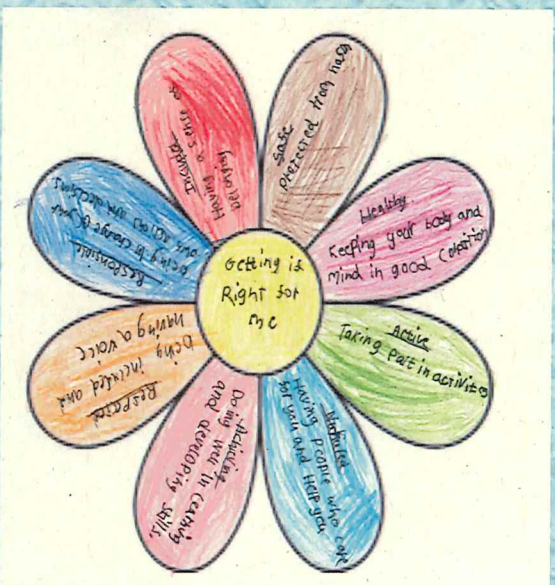 Getting it
Right for
me
Safe
protected from harm
Healthy
Keeping your body and
mind in good condition
Active
Taking part in activities
Nurtured
Having people who care
for you and Help you
Achieving
Doing well in learning
and developing skills.
Respected
being included and
having a voice
Responsible
being in charge of your
own actions and decisions
Included
Having a sense of
belonging